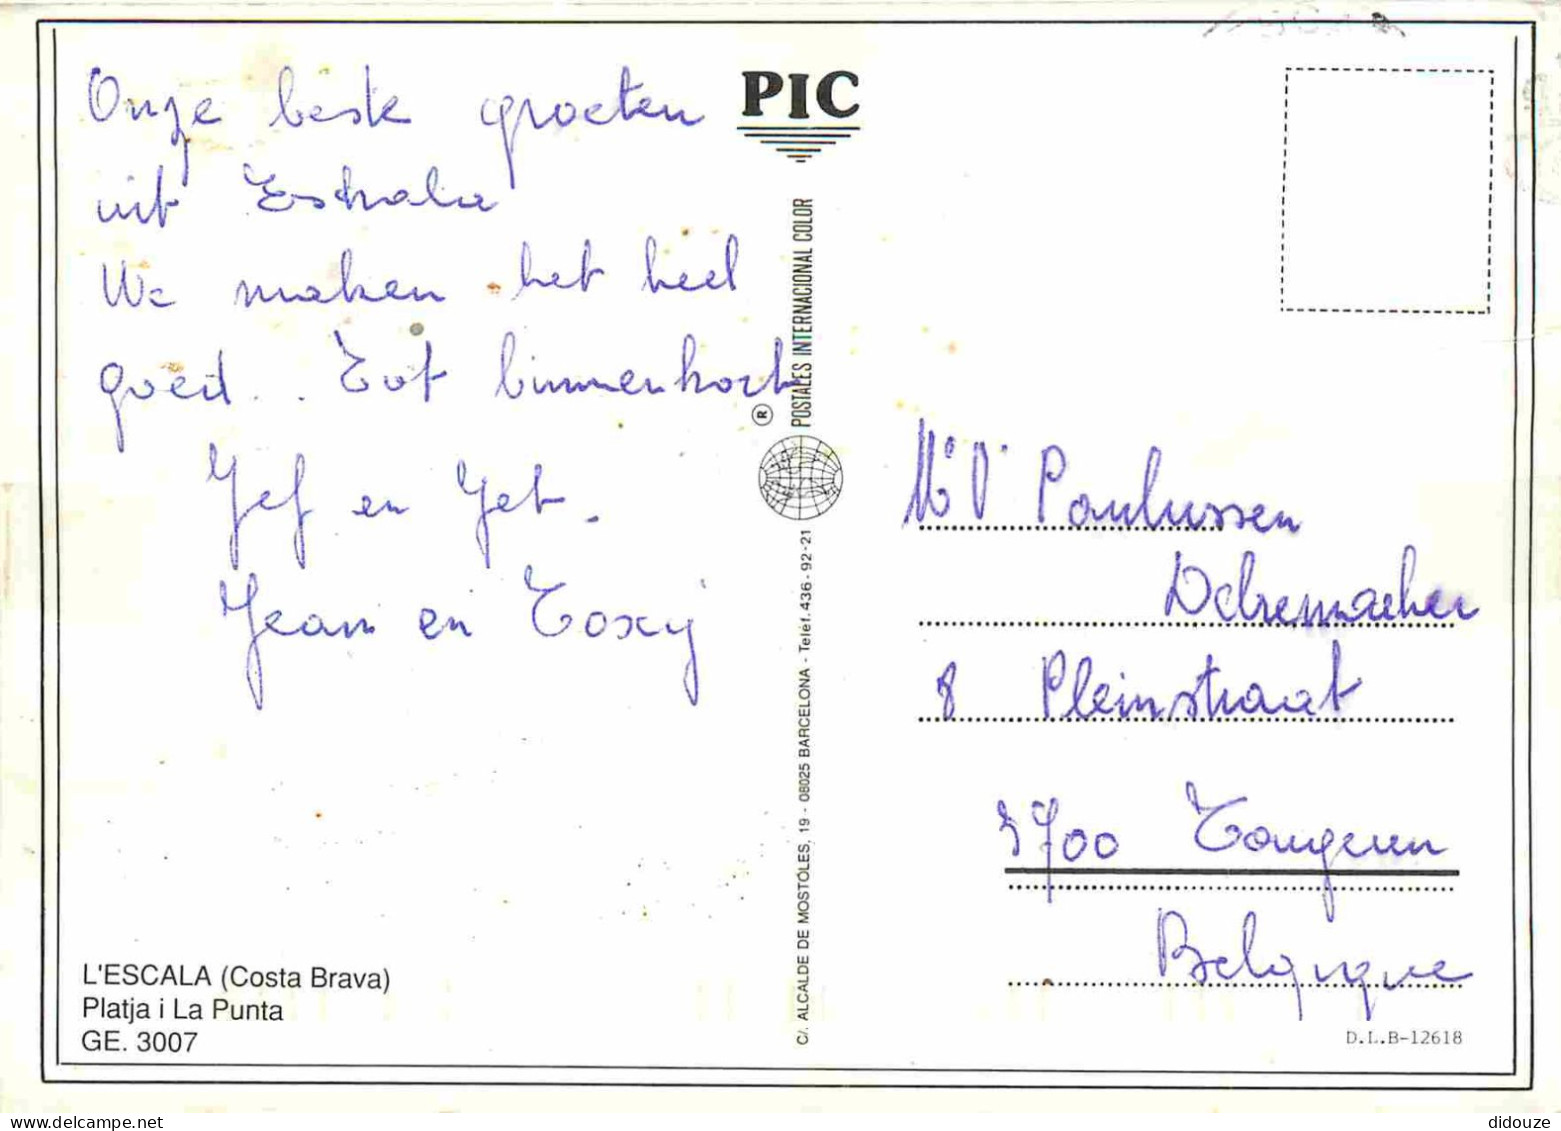 Onze beste groeten
uit Eskala
We maken het heel
goed... Tot binnenkort
Jef en Jet.
Jean en Toxy
L'ESCALA (Costa Brava)
Platja i La Punta
GE. 3007
PIC
POSTALES INTERNACIONAL COLOR
®
C/. ALCALDE DE MOSTOLES, 19 - 08025 BARCELONA - Teléf. 436-92-21
Paulussen
8 Pleinstraat
3700 Tongeren
Belgique
D.L.B-12618
didouze